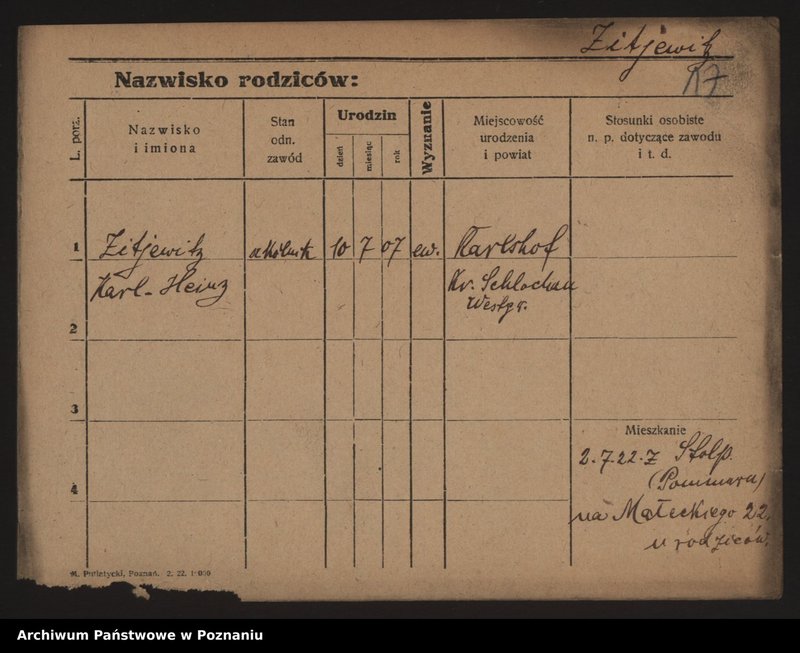 Zitjewitz
Nazwisko rodziców:
L. porz.
Nazwisko
i imiona
Stan
odn.
zawód
Urodzin
dzień
miesiąc
rok
Wyznanie
Miejscowość
urodzenia
i powiat
Stosunki osobiste
n. p. dotyczące zawodu
i t. d.
1 Zitjewitz 10 7 07 ew. Karlshof
Karl-Heinz Kr. Schlochau
Westpr.
2
3
Mieszkanie
2.7.22. z Stolp.
(Pommern)
4
na Małeckiego 22,
u rodziców.
Poznań. 2. 22.
Archiwum Państwowe w Poznaniu